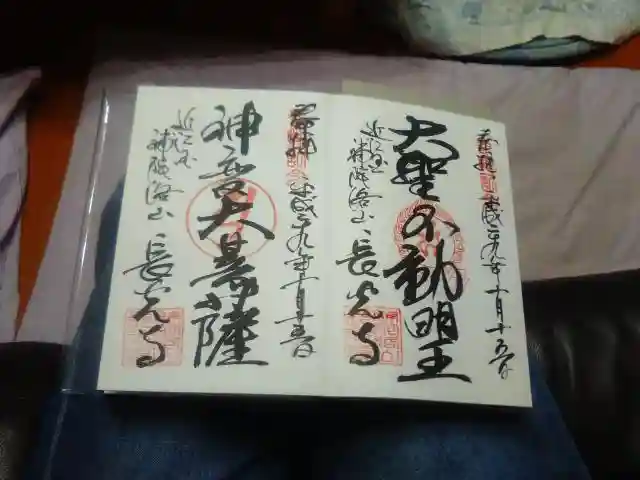 奉拝 平成二十九年十月十五日
大聖不動明王
近江国 補陀洛山 長光寺
奉拝 平成二十九年十月十五日
神変大菩薩
近江国 補陀洛山 長光寺